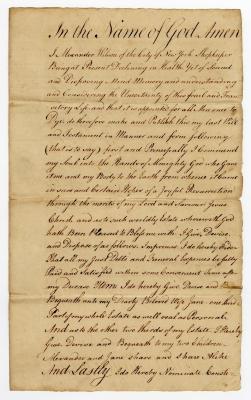 In the Name of God Amen
I Alexander Wilson of the City of New York Shopkeeper
Being at Present Declining in Health Yet of Sound
and Disposing Mind Memory and understanding
and Considering the Uncertainty of this frail and Trans
itory Life and that it is appointed for all Men once to
Dye do therefore make and Publish this my last Will
and Testament in Manner and form following
that is to say first and Principally I Commend
my Soul into the Hands of Almighty God who Gave
it me and my Body to the Earth from whence it Came
in sure and Certain Hope of a Joyful Resurrection
through the merits of my Lord and Saviour Jesus
Christ and as to such worldly Estate wherewith God
hath Been Pleased to Bless me with I Give Devise
and Dispose of as follows. Imprimis I do hereby Order
that all my Just Debts and Funeral Expences be fully
Paid and Satisfied within some Convenient Time after
my Decease Item I do hereby Give Devise and
Bequeath unto my Dearly Beloved Wife Jane one third
Part of my whole Estate as well real as Personal
And as to the other two thirds of my Estate I Hereby
Give Devise and Bequeath to my two Children
Alexander and Jane share and share Alike
And Lastly I do Hereby Nominate Consti